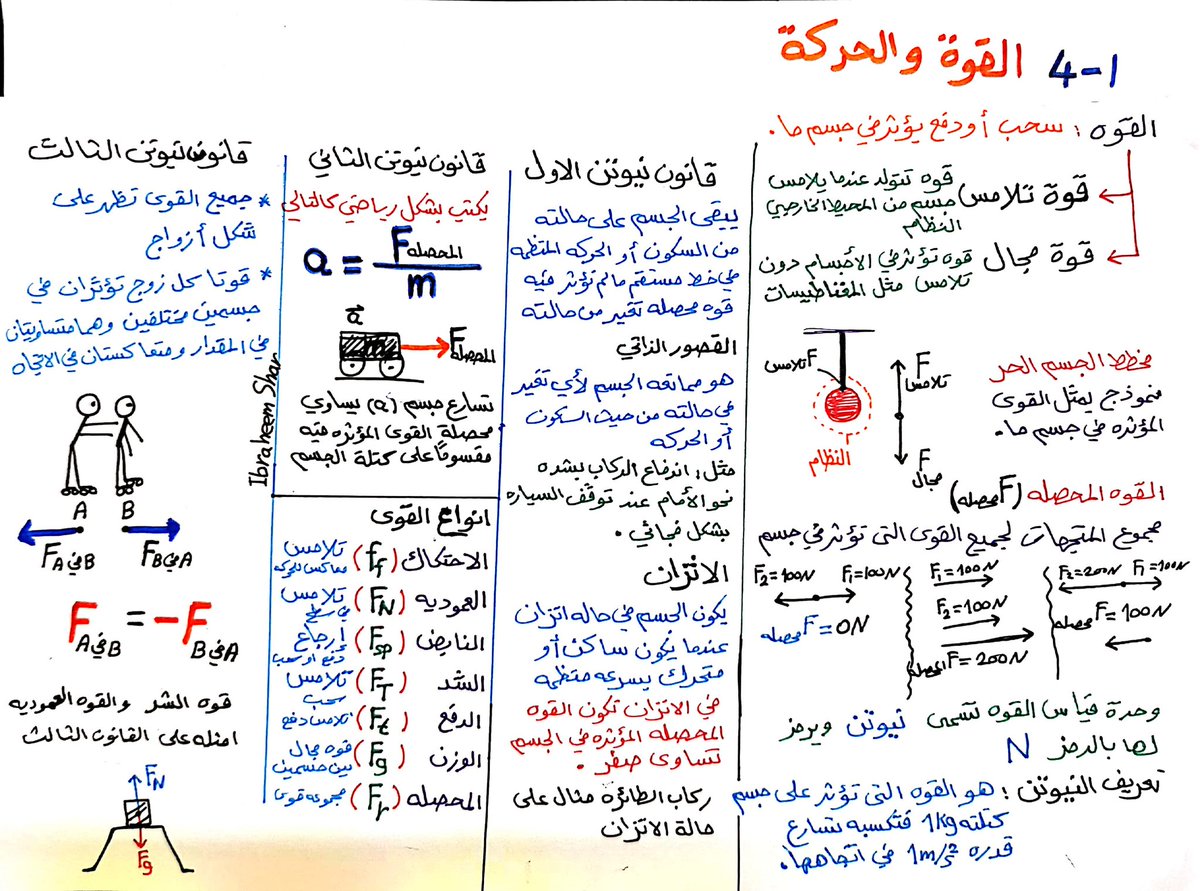 4-1 القوة والحركة
القوه : سحب أو دفع يؤثر في جسم ما.
قوة تلامس
قوه تتولد عندما يلامس
جسم من المحيط الخارجي
النظام
قوة مجال
قوه تؤثر في الأجسام دون
تلامس مثل المغناطيسات
مخطط الجسم الحر
نموذج يمثل القوى
المؤثره في جسم ما.
F تلامس
النظام
F تلامس
F مجال
القوه المحصله (F محصله)
مجموع المتجهات لجميع القوى التي تؤثر في جسم
F₂=100N F₁=100N
F محصله = 0N
F₁=100N
F₂=100N
F المحصله = 200N
F₂=200N F₁=100N
F محصله = 100N
وحدة قياس القوه تسمى نيوتن ويرمز
لها بالرمز N
تعريف النيوتن : هو القوه التي تؤثر على جسم
كتلته 1kg فتكسبه تسارع
قدره 1m/s² في اتجاهها.
قانون نيوتن الاول
يبقى الجسم على حالته
من السكون أو الحركه المنتظمه
في خط مستقيم مالم تؤثر فيه
قوه محصله تغير من حالته
القصور الذاتي
هو ممانعه الجسم لأي تغير
في حالته من حيث السكون
أو الحركه
مثل : اندفاع الركاب بشده
نحو الأمام عند توقف السياره
بشكل فجائي .
الاتزان
يكون الجسم في حاله اتزان
عندما يكون ساكن أو
متحرك بسرعه منتظمه
في الاتزان تكون القوه
المحصله المؤثره في الجسم
تساوى صفر .
ركاب الطائرة مثال على
حالة الاتزان
قانون نيوتن الثاني
يكتب بشكل رياضي كالتالي
a = F المحصله / m
a
m
F المحصله
تسارع جسم (a) يساوي
محصلة القوى المؤثره فيه
مقسومًا على كتلة الجسم
انواع القوى
الاحتكاك (Ff) تلامس معاكس للحركه
العموديه (FN) تلامس في سطح
النابض (Fsp) إرجاع دفع او سحب
الشد (FT) تلامس سحب
الدفع (Ft) تلامس دفع
الوزن (Fg) قوه مجال بين جسمين
المحصله (Fr) مجموعه قوى
Ibraheem Shar
قانون نيوتن الثالث
* جميع القوى تظهر على
شكل أزواج
* قوتا كل زوج تؤثران في
جسمين مختلفين وهما متساويتان
في المقدار ومتعاكستان في الاتجاه
A B
F A في B
F B في A
F A في B = -F B في A
قوه الشد والقوه العموديه
امثله على القانون الثالث
FN
Fg